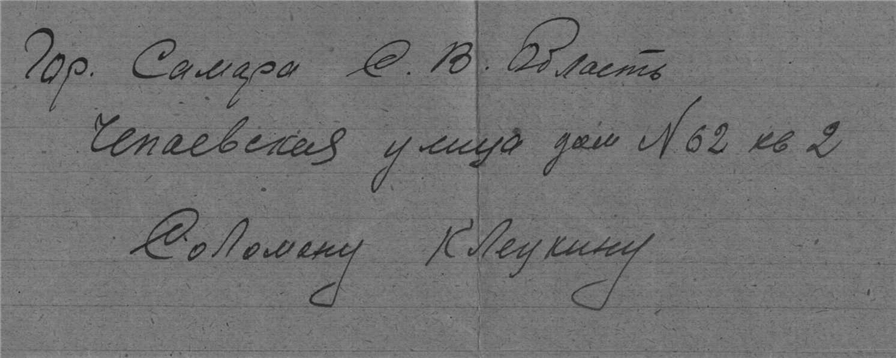 Гор. Самара С. В. Область
Чепаевская улица дом N 62 кв 2
Соломону Клецкину